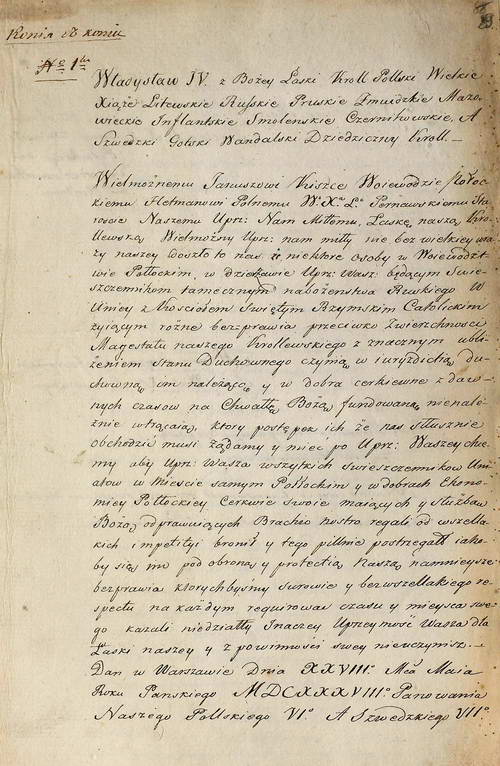 Kopia od kopii
No 1ш
Władysław IV. z Bożey Łaski Kroll Pollski Wielkie
Xiąże Litewskie Ruskie Pruskie Zmudzkie Mazo,,
wieckie Inflantskie Smolenskie Czernihowskie, A
Szwedzki Gotski Wandalski Dziedziczny Kroll. —
Wielmożnemu Januszowi Kiszce Woiewodzie Połoc,,
kiemu Hetmanowi Polnemu W. X. L. Pernawskiemu Sta,,
roscie Naszemu Uprz: Nam Miłemu, Łaskę, naszą Kro,,
llewską, Wielmożny Uprz: nam miły nie bez wielkiey ura,,
zy naszey doszło to nas że niektore osoby w Woiewodzt,,
wie Połłockim, w dzierżawie Uprz: Wasz: będącym Swie,,
szczennikom tamecznym nabożenstwa Ruskiego W
Uniey z Kosciołem Swiętym Rzymskim Catolickim
żyiącym rożne bezprawia przeciwko Zwierzchnosci
Magestatu naszego Krollewskiego z znacznym ubli,,
żeniem Stanu Duchownego czynią, w iuryzdictią du,,
chowną, im należącą, y w dobra cerkiewne z daw,,
nych czasow na Chwałłę Bożą, fundowaną, nienale,,
żnie wtrącaią, ktory postępek ich że nas słłusznie
obchodzić musi żądamy y mieć po Uprz: Waszey chce,,
my aby Uprz: Wasza wszytkich swieszczennikow Uni,,
atow w Miescie samym Połłockim y w dobrach Ekono,,
miey Połłockiey Cerkwie swoie maiących y słłużbą
Bożą, odprawuiących Brachio nostro regali, od wszella,,
kich impetityi bronił y tego pillnie postrzegałł iako,,
by się im pod obroną y protectią Naszą namnieysze
bezprawia ktorychbyśmy surowie y bezwszellakiego re,,
spectu na każdym requirować czasu y mieysca swe,,
go kazali niedziałły Inaczey Uprzeymość Wasza dla
Łaski naszey y z powinności swey nieuczynisz. —
Dan w Warszawie Dnia XXVIII. Mca Maia
Roku Panskiego MDCXXXVIII o Panowania
Naszego Pollskiego VI o. A Szwedzkiego VII o.